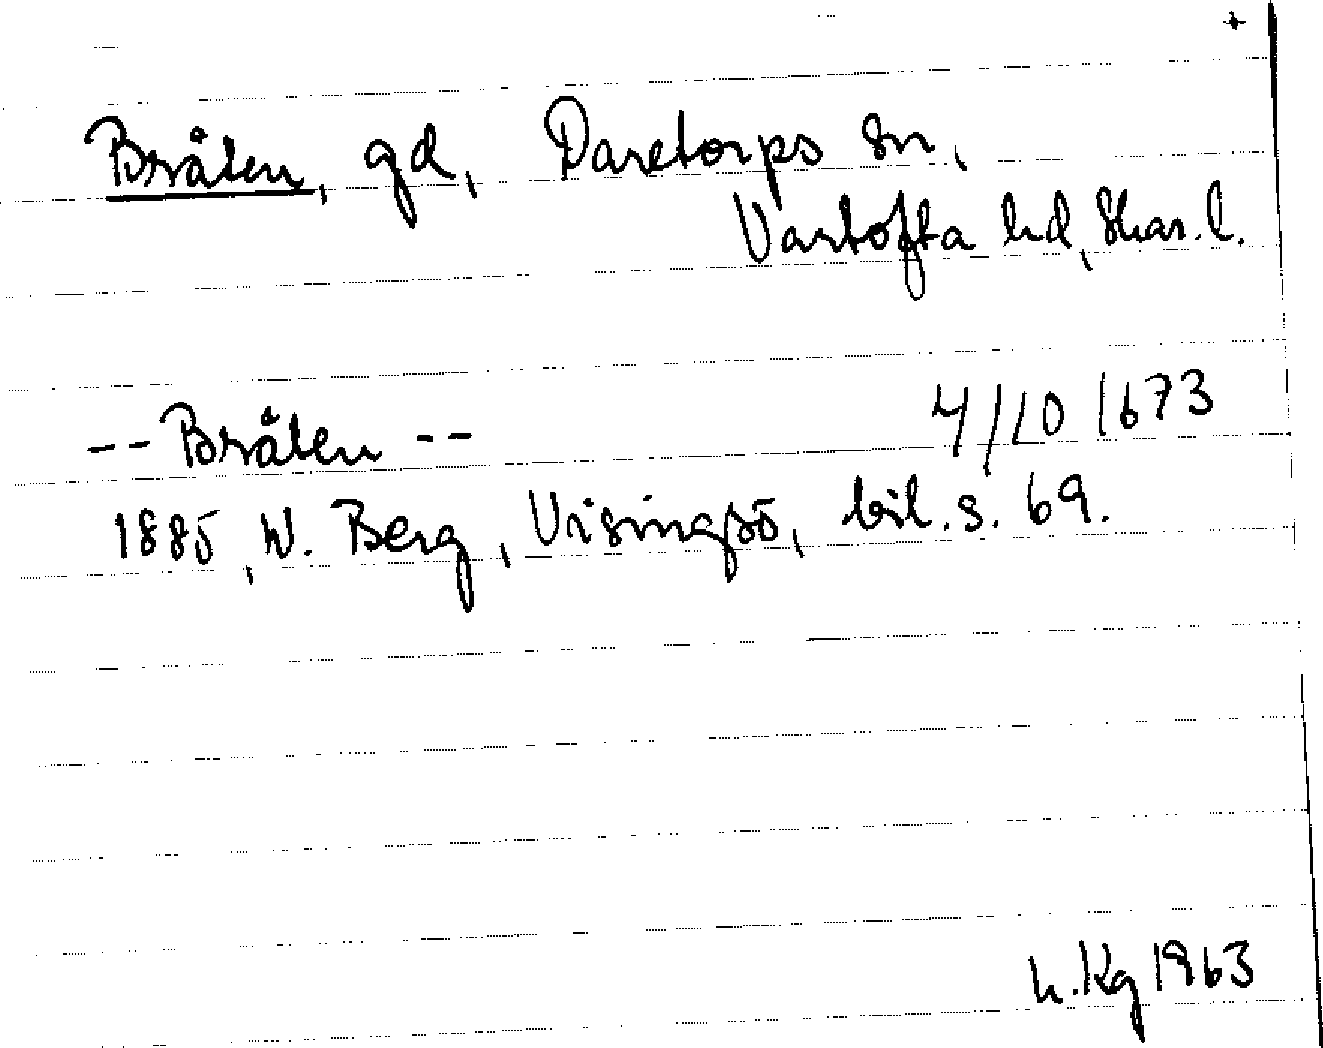 +
Bråten, gd, Daretorps sn,
Vartofta hd, Skar. l.
-- Bråten -- 4/10 1673
1885, W. Berg, Visingsö, bil. s. 69.
h. Kg 1963